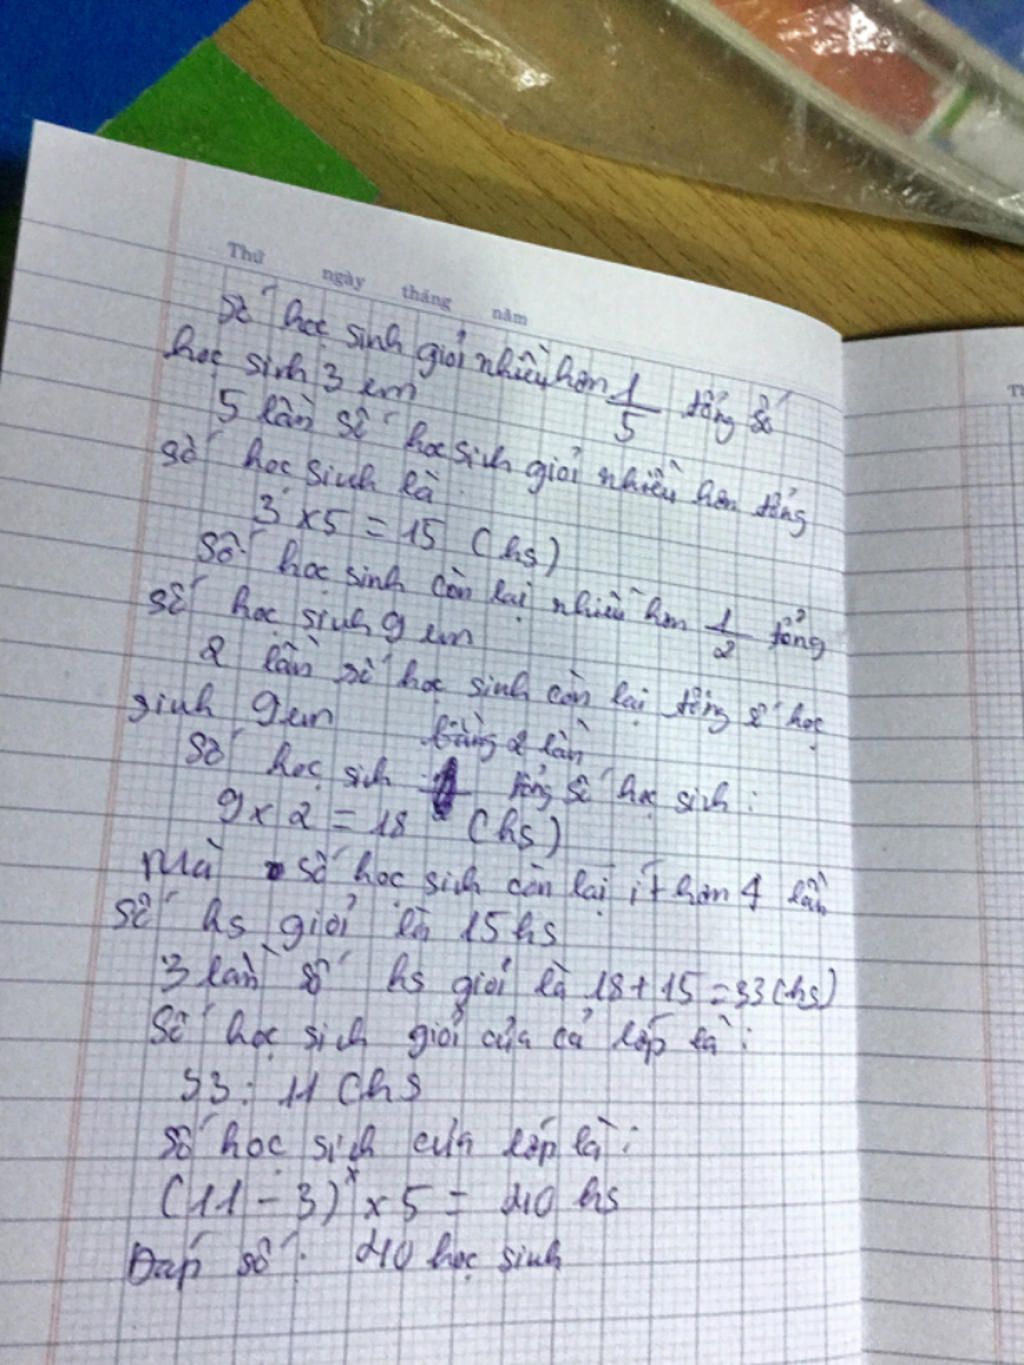 Thứ ngày tháng năm
Số học sinh giỏi nhiều hơn 1/5 tổng số
học sinh 3 em
5 lần số học sinh giỏi nhiều hơn tổng
số học sinh là
3 x 5 = 15 (hs)
Số học sinh còn lại nhiều hơn 1/2 tổng
số học sinh 9 em
2 lần số học sinh còn lại tổng số học
sinh 9 em bằng 2 lần
Số học sinh tổng số học sinh :
9 x 2 = 18 (hs)
Mà số học sinh còn lại ít hơn 4 lần
số hs giỏi là 15 hs
3 lần số hs giỏi là 18 + 15 = 33 (hs)
Số học sinh giỏi của cả lớp là :
33 : 11 (hs
Số học sinh của lớp là :
(11 - 3) x x 5 = 40 hs
Đáp số : 40 học sinh